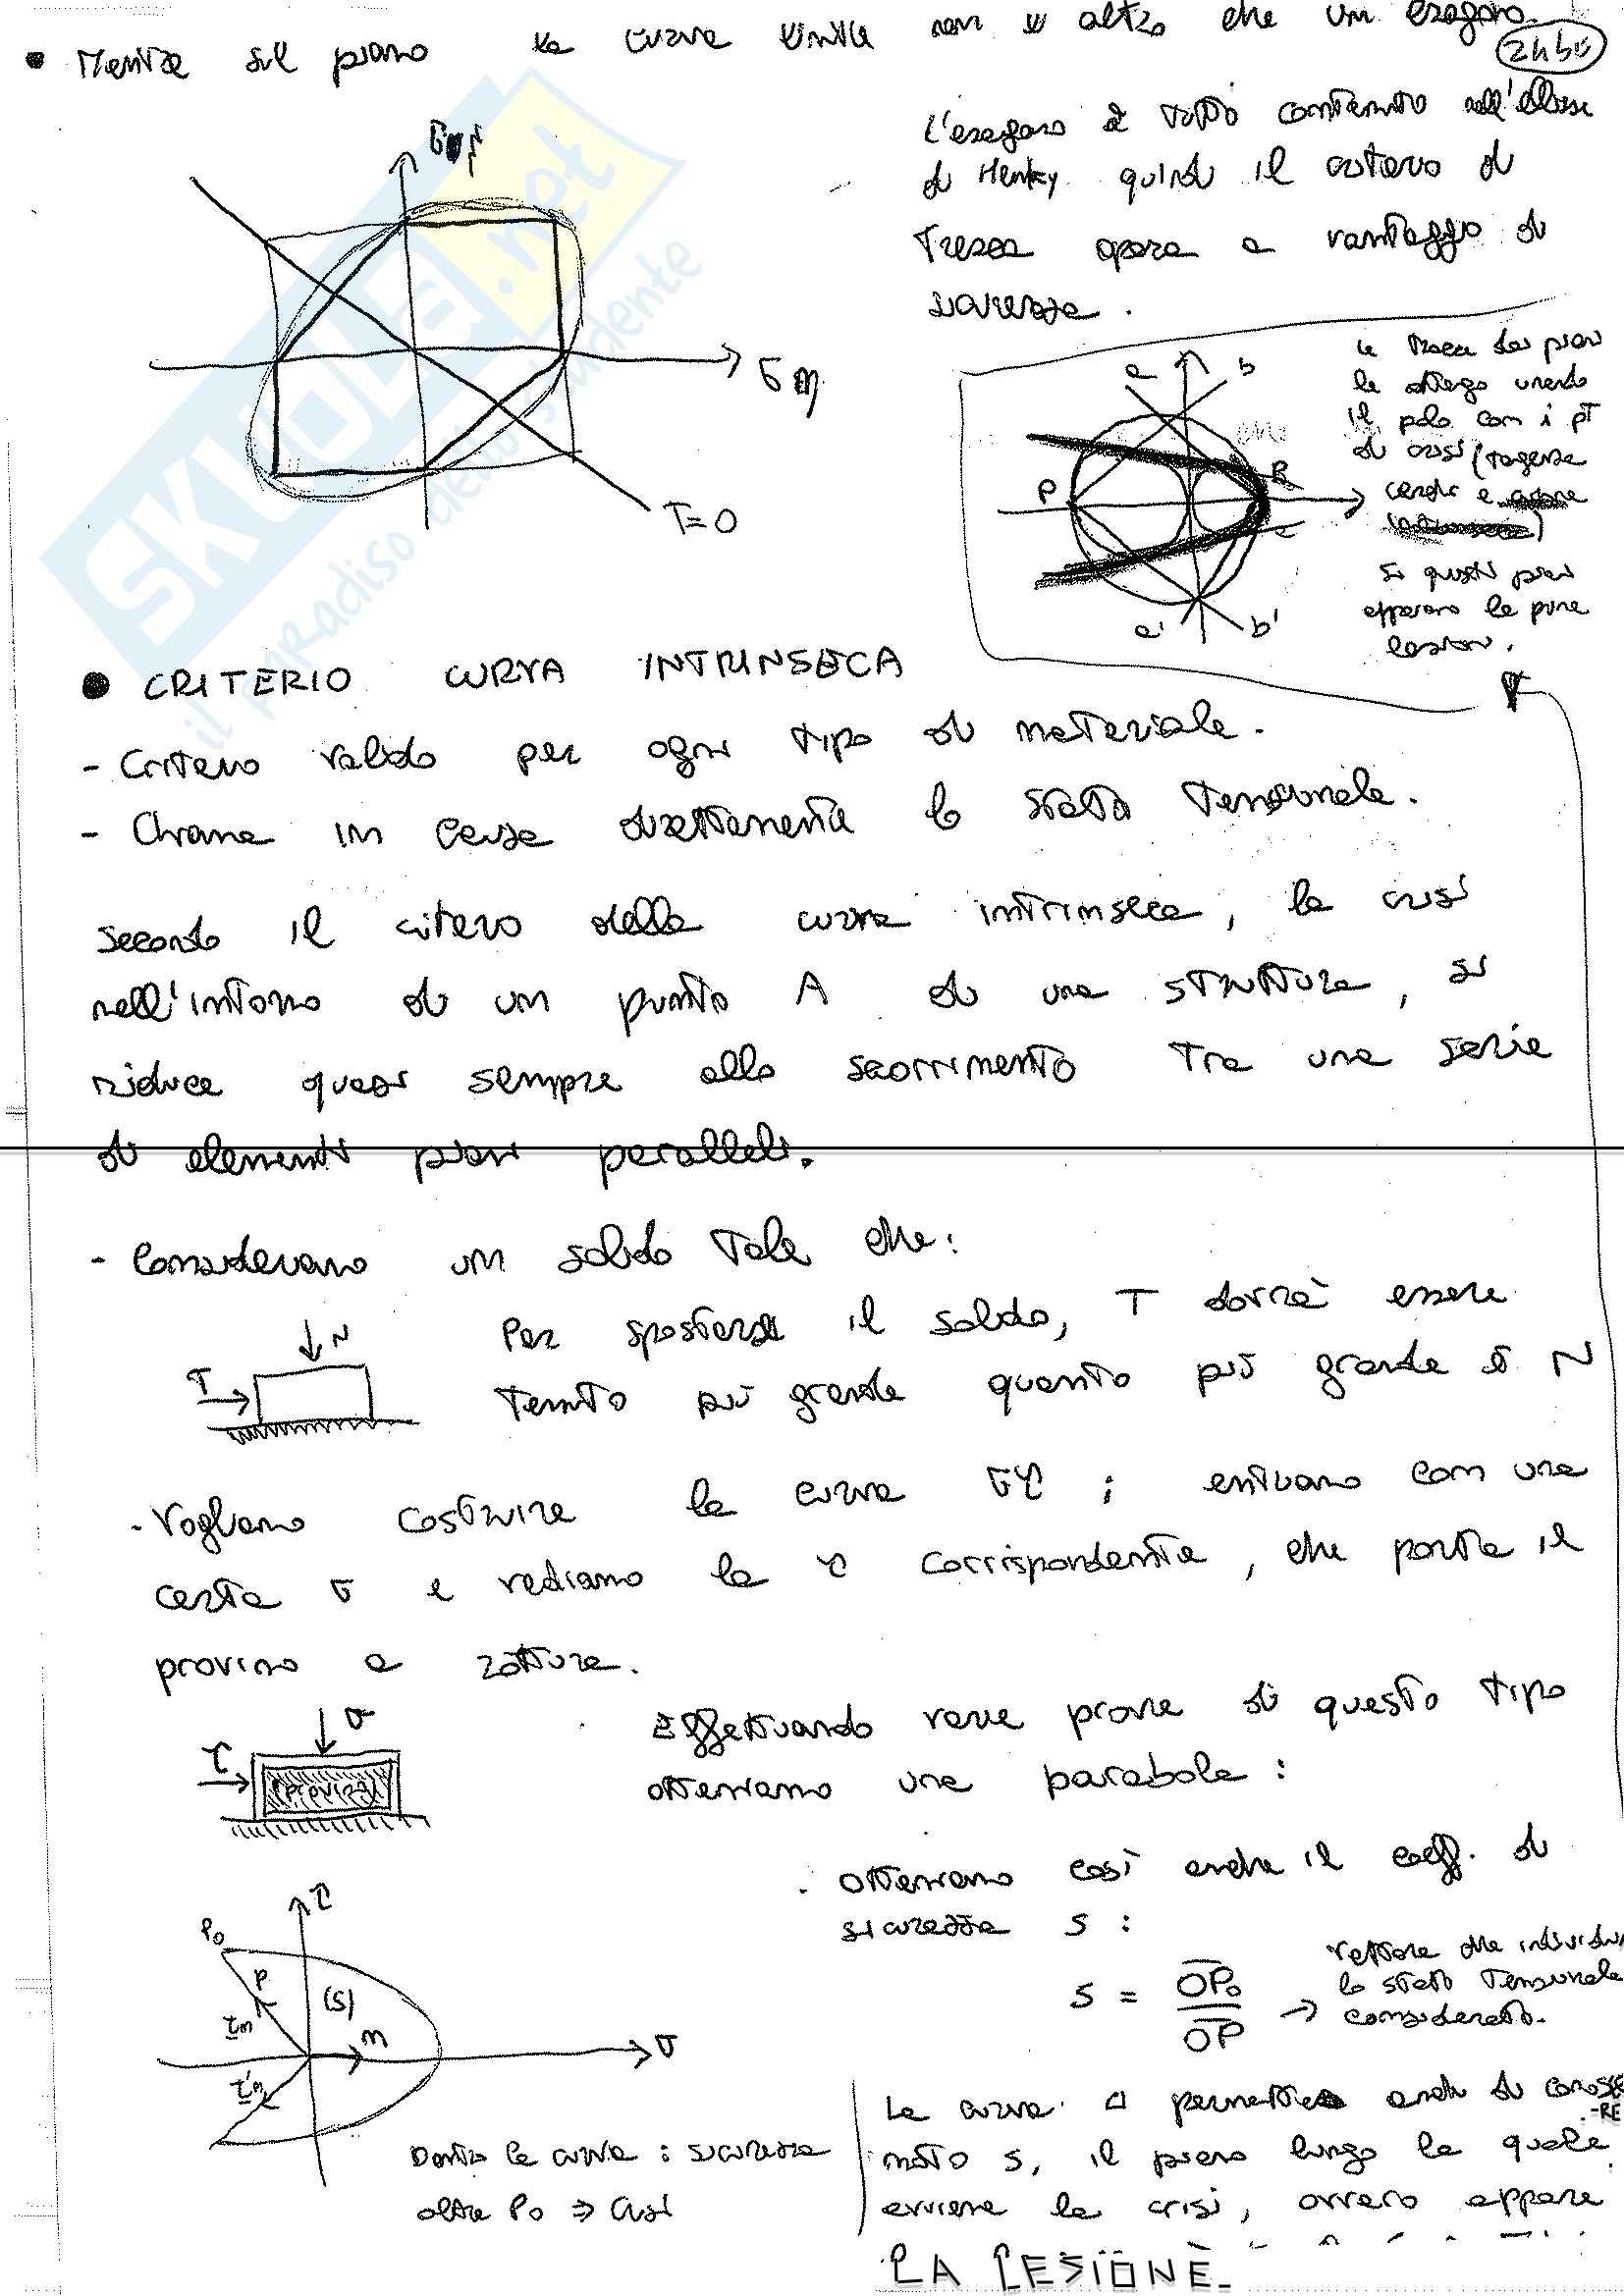 • Mentre sul piano la curva limite non è altro che un esagono.
24bis
L'esagono è tutto contenuto nell'ellisse
di Henky quindi il criterio di
Tresca opera a vantaggio di
sicurezza.
σ η
T=0
a b
P
R
a' b'
le tracce dei piani
le ottengo unendo
il polo con i pt
di crisi (tangenza
cerchi e
Su questi piani
appaiono le prime
lesioni.
• CRITERIO CURVA INTRINSECA
- Criterio valido per ogni tipo di materiale.
- Chiama in causa direttamente lo stato tensionale.
Secondo il criterio della curva intrinseca, la crisi
nell'intorno di un punto A di una struttura, si
riduce quasi sempre allo scorrimento tra una serie
di elementi piani paralleli.
- Consideriamo un solido tale che:
N
T
Per spostare il solido, T dovrà essere
tanto più grande quanto più grande è N
- Vogliamo costruire la curva στ ; entriamo con una
certa σ e vediamo la τ corrispondente, che porta il
provino a rottura.
σ
τ
(provino)
Effettuando varie prove di questo tipo
otteniamo una parabola :
. otteniamo così anche il coeff. di
sicurezza s :
s = OP₀ / OP → vettore che individua
lo stato tensionale
considerato.
τ
P₀
P
(S)
tn
n
σ
t'n
Dentro la curva : sicurezza
oltre P₀ ⇒ crisi
La curva ci permette anche di conosce
-RE
noto s, il piano lungo la quale
avviene la crisi, ovvero appare
LA LESIONE.
SKUOLA.net
il paradiso dello studente